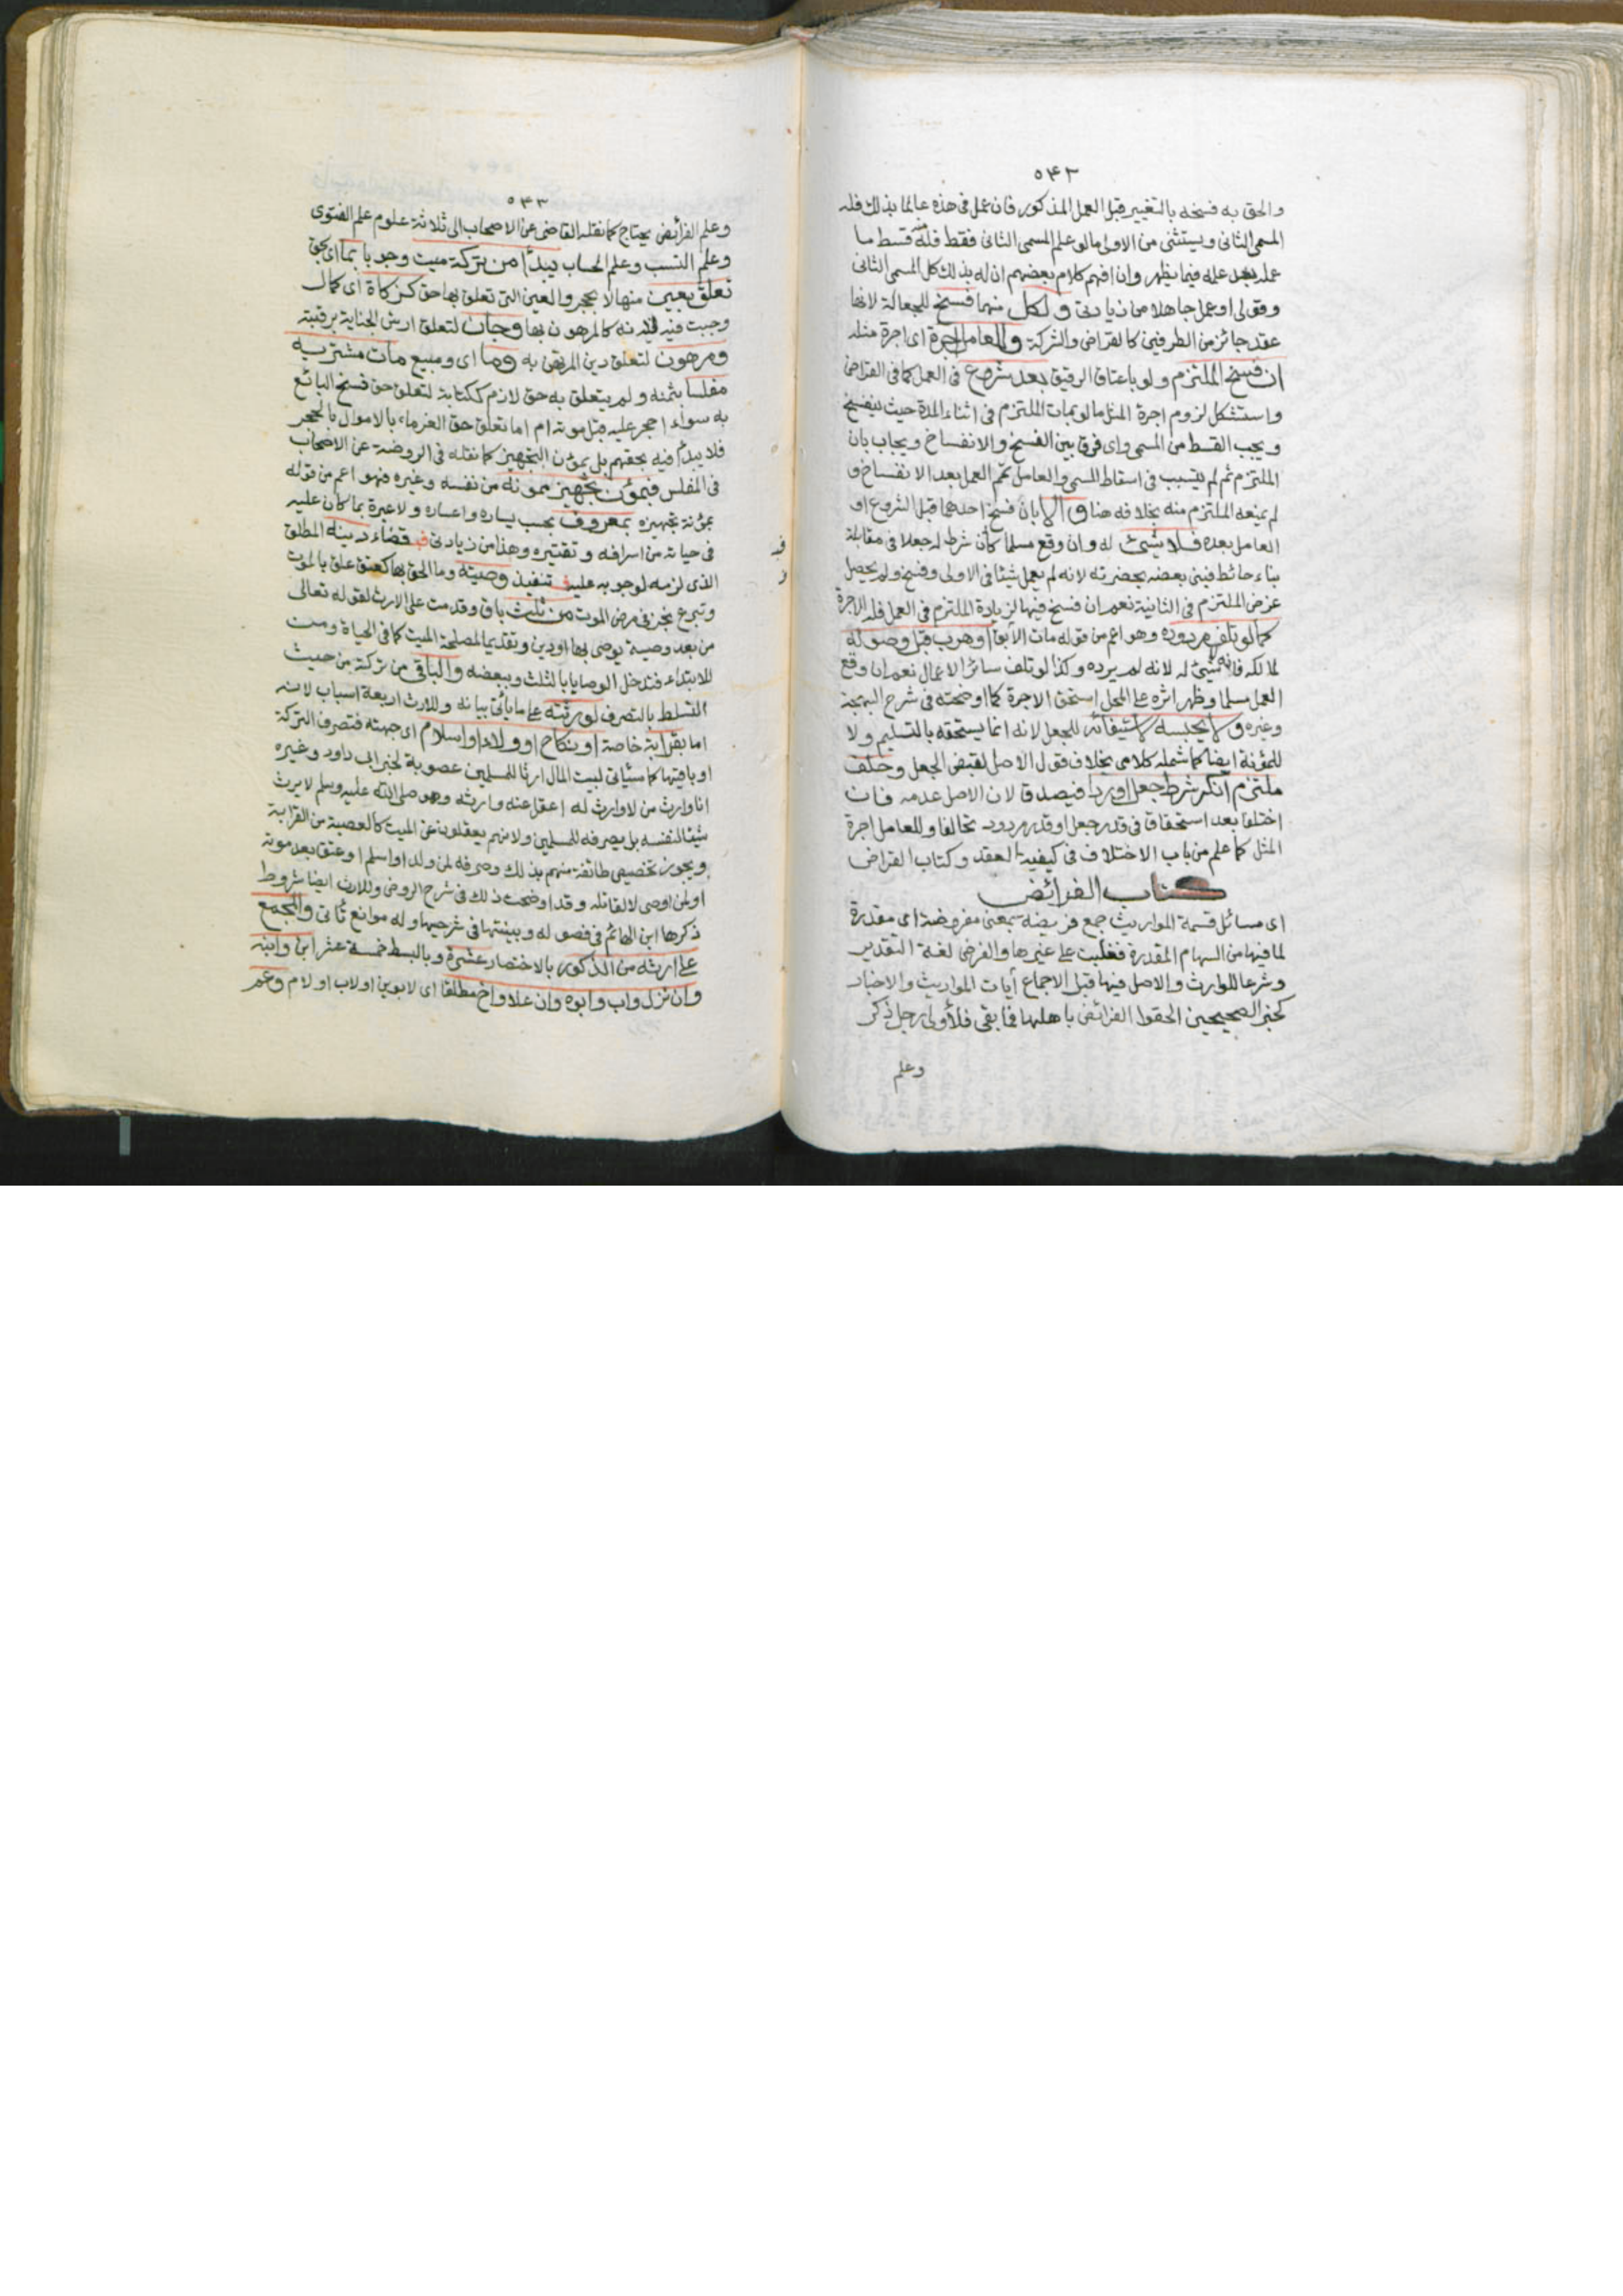 ٥٤٢
والحق به فسخه بالتغيير قبل العمل المذكور فان عمل فى هذه عالما بذلك فله
المسمى الثانى ويستثنى من الاولى مالو علم المسمى الثانى فقط فله قسط ما
عمله بعد علمه فيما يظهر وان افهم كلام بعضهم ان له بذلك كل المسمى الثانى
وقولى او عمل جاهلا من زيادتى ولكل منهما فسخ للجعالة لانها
عقد جائز من الطرفين كالقراض والشركة وللعامل اجرة اى اجرة مثله
ان فسخ الملتزم ولو باعتاق الرقيق بعد شروع فى العمل كما فى القراض
واستشكل لزوم اجرة المثل مالو مات الملتزم فى اثناء المدة حيث ينفسخ
ويجب القسط من المسمى واى فرق بين الفسخ والانفساخ ويجاب بان
الملتزم ثم لم يتسبب فى اسقاط المسمى والعامل تمم العمل بعد الانفساخ و
لم يمنعه الملتزم منه بخلافه هنا والا بان فسخ احدهما قبل الشروع او
العامل بعده فلا شيئ له وان وقع مسلما كأن شرط له جعلا فى مقابلة
بناء حائط فبنى بعضه بحضرته لانه لم يعمل شيئا فى الاولى وفسخ ولم يحصل
غرض الملتزم فى الثانية نعم ان فسخ فيها لزيادة الملتزم فى العمل فله الاجرة
كما لو تلف مردوده وهو اعم من قوله مات الآبق او هرب قبل وصوله
لمالكه فانه لا شيئ له لانه لم يرده وكذا لو تلف سائر الاعمال نعم ان وقع
العمل مسلما وظهر اثره على المحل استحق الاجرة كما اوضحته فى شرح البهجة
وغيره ولا يحبسه لاستيفائه للجعل لانه انما يستحقه بالتسليم ولا
للمؤنة ايضا كما شمله كلامى بخلاف قول الاصل لقبض الجعل وحلف
ملتزم انكر شرط جعل او ردا فيصدق لان الاصل عدمه فان
اختلفا بعد استحقاق فى قدر جعل او قدر مردود تحالفا وللعامل اجرة
المثل كما علم من باب الاختلاف فى كيفية العقد وكتاب القراض
كتاب الفرائض
اى مسائل قسمة المواريث جمع فريضة بمعنى مفروضة اى مقدرة
لما فيها من السهام المقدرة فغلبت على غيرها والفرض لغة التقدير
وشرعا للوارث والاصل فيها قبل الاجماع آيات المواريث والاخبار
كخبر الصحيحين الحقوا الفرائض باهلها فما بقى فلأولى رجل ذكر
وعلم
٥٤٣
وعلم الفرائض يحتاج كما نقله القاضى عن الاصحاب الى ثلاثة علوم علم الفتوى
وعلم النسب وعلم الحساب يبدأ من تركة ميت وجوبا بما اى بحق
تعلق بعين منها لا بحجر والعين التى تعلق بها حق كزكاة اى كمال
وجبت فيه لانه كالمرهون بها وجان لتعلق ارش الجناية برقبته
ومرهون لتعلق دين المرتهن به وما اى ومبيع مات مشتريه
مفلسا بثمنه ولم يتعلق به حق لازم ككتابة لتعلق حق فسخ البائع
به سواء احجر عليه قبل موته ام لا اما تعلق حق الغرماء بالاموال بالحجر
فلا يبدأ فيه بحقهم بل بمؤن التجهيز كما نقله فى الروضة عن الاصحاب
فى المفلس فبمؤن تجهيز ممونه من نفسه وغيره فهو اعم من قوله
بمؤنة تجهيزه بمعروف بحسب يساره واعساره ولا عبرة بما كان عليه
فى حياته من اسرافه وتقتيره وهذا من زيادتى فـ قضاء دينه المطلق
الذى لزمه لوجوبه عليه فـ تنفيذ وصيته وما الحق بها كعتق علق بالموت
وتبرع نجز فى مرض الموت من ثلث باق وقدمت على الارث لقوله تعالى
من بعد وصية يوصى بها او دين وتقديما لمصلحة الميت كما فى الحياة ومن
للابتداء فتدخل الوصايا بالثلث وببعضه والباقى من تركة من حيث
التسلط بالتصرف لورثته على ما يأتى بيانه وللارث اربعة اسباب لانه
اما بقرابة خاصة او نكاح او ولاء او اسلام اى جهته فتصرف التركة
او باقيها كما سيأتى لبيت المال ارثا للمسلمين عصوبة لخبر ابى داود وغيره
انا وارث من لا وارث له اعقل عنه وارثه وهو صلى الله عليه وسلم لا يرث
شيئا لنفسه بل يصرفه للمسلمين ولانهم يعقلون عن الميت كالعصبة من القرابة
ويجوز تخصيص طائفة منهم بذلك وصرفه لمن ولد او اسلم او عتق بعد موته
او لمن اوصى له لا لقاتله وقد اوضحت ذلك فى شرح الروض وللارث ايضا شروط
ذكرها ابن الهائم فى فصوله وبينتها فى شرحيها وله موانع تأتى والمجمع
على ارثه من الذكور بالاختصار عشرة وبالبسط خمسة عشر ابن وابنه
وان نزل واب وابوه وان علا واخ مطلقا اى لابوين او لاب او لام وعم